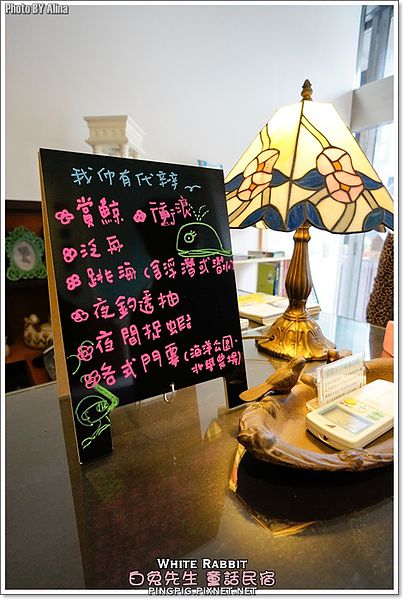 Photo BY Alina
我們有代辦
賞鯨 衝浪
泛舟
跳海(含浮潛或潛水)
夜釣透抽
夜間捉蝦
各式門票(海洋公園、
兆豐農場)
WHITE RABBIT
白兔先生 童話民宿
PINGPIG.PIXNET.NET